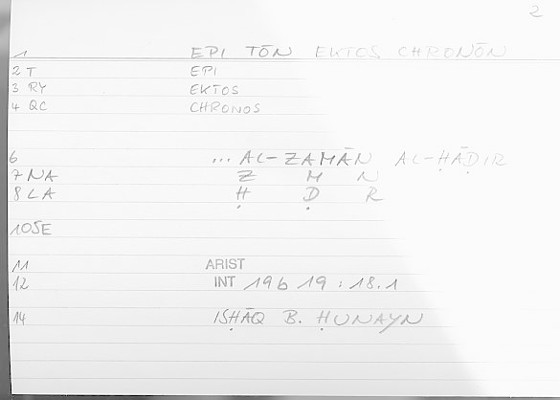 2
1 EPI TŌN EKTOS CHRONŌN
2 T EPI
3 RY EKTOS
4 QC CHRONOS
6 ... AL-ZAMĀN AL-ḤĀḌIR
7 NA Z M N
8 LA Ḥ Ḍ R
10 SE
11 ARIST
12 INT 19b 19 : 18.1
14 ISḤĀQ B. ḤUNAYN